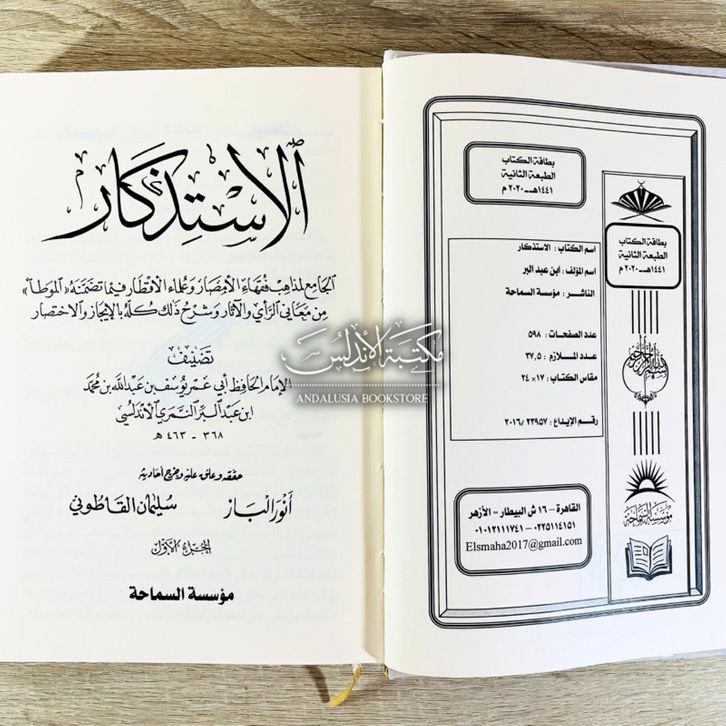 الاستذكار
الجامع لمذاهب فقهاء الأمصار وعلماء الأقطار فيما تضمنه «الموطأ»
من معاني الرأي والآثار وشرح ذلك كله بالإيجاز والاختصار
تصنيف
الإمام الحافظ أبي عمر يوسف بن عبد الله بن محمد
ابن عبد البر النمري الأندلسي
٣٦٨ - ٤٦٣ هـ
حققه وعلق عليه وخرج أحاديثه
أنور الباز
سليمان القاطوني
الجزء الأول
مؤسسة السماحة
مكتبة الأندلس
ANDALUSIA BOOKSTORE
بطاقة الكتاب
الطبعة الثانية
١٤٤١هـ-٢٠٢٠م
اسم الكتاب : الاستذكار
اسم المؤلف : ابن عبد البر
الناشر : مؤسسة السماحة
عدد الصفحات : ٥٩٨
عدد الملازم : ٣٧,٥
مقاس الكتاب : ١٧×٢٤
رقم الإيداع : ٢٠١٦/٢٣٩٥٧
القاهرة - ١٦ ش البيطار - الأزهر
٠١٠١٢١١١٧٤١ - ٠٢٢٥١١٤١٥١
Elsmaha2017@gmail.com
بطاقة الكتاب
الطبعة الثانية
١٤٤١هـ-٢٠٢٠م
بسم الله الرحمن الرحيم
مؤسسة السماحة